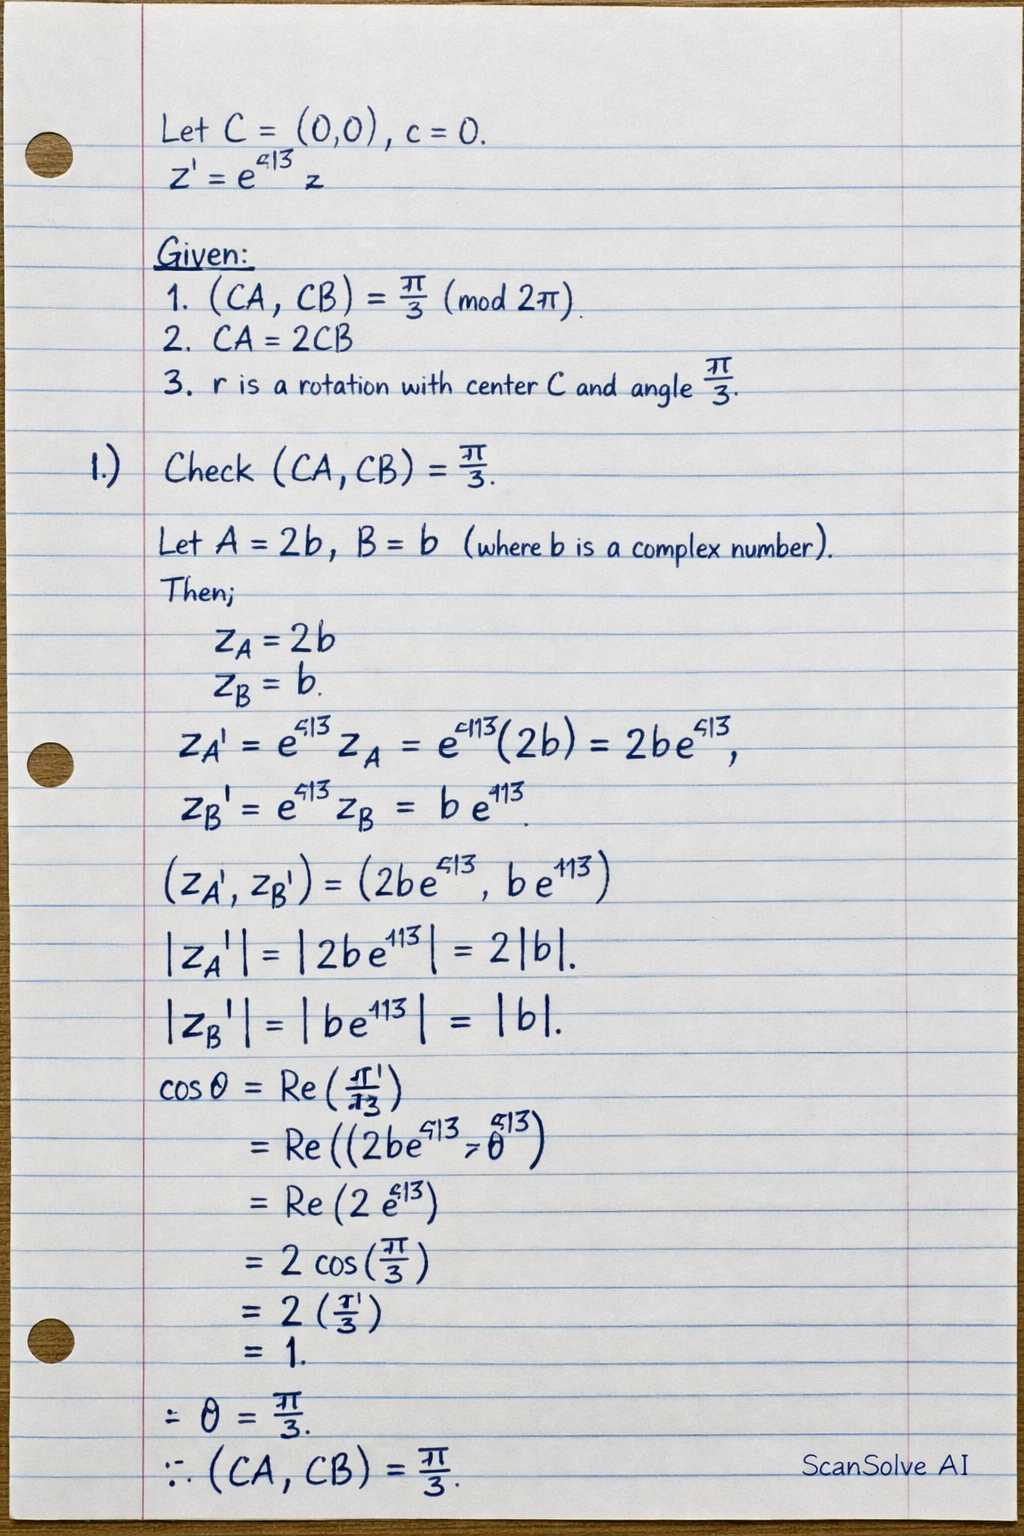 Let C = (0,0), c = 0.
z' = e^{π/3} z
Given:
1. (CA, CB) = π/3 (mod 2π).
2. CA = 2CB
3. r is a rotation with center C and angle π/3.
1.) Check (CA, CB) = π/3.
Let A = 2b, B = b (where b is a complex number).
Then;
z_A = 2b
z_B = b.
z_A' = e z_A = e (2b) = 2be ,
z_B' = e z_B = b e .
(z_A', z_B') = (2be , be )
|z_A'| = |2be | = 2|b|.
|z_B'| = |be | = |b|.
cos θ = Re
= Re((2be
= Re(2 e )
= 2 cos(π/3)
= 2
= 1.
= θ = π/3.
∴ (CA, CB) = π/3.
ScanSolve AI